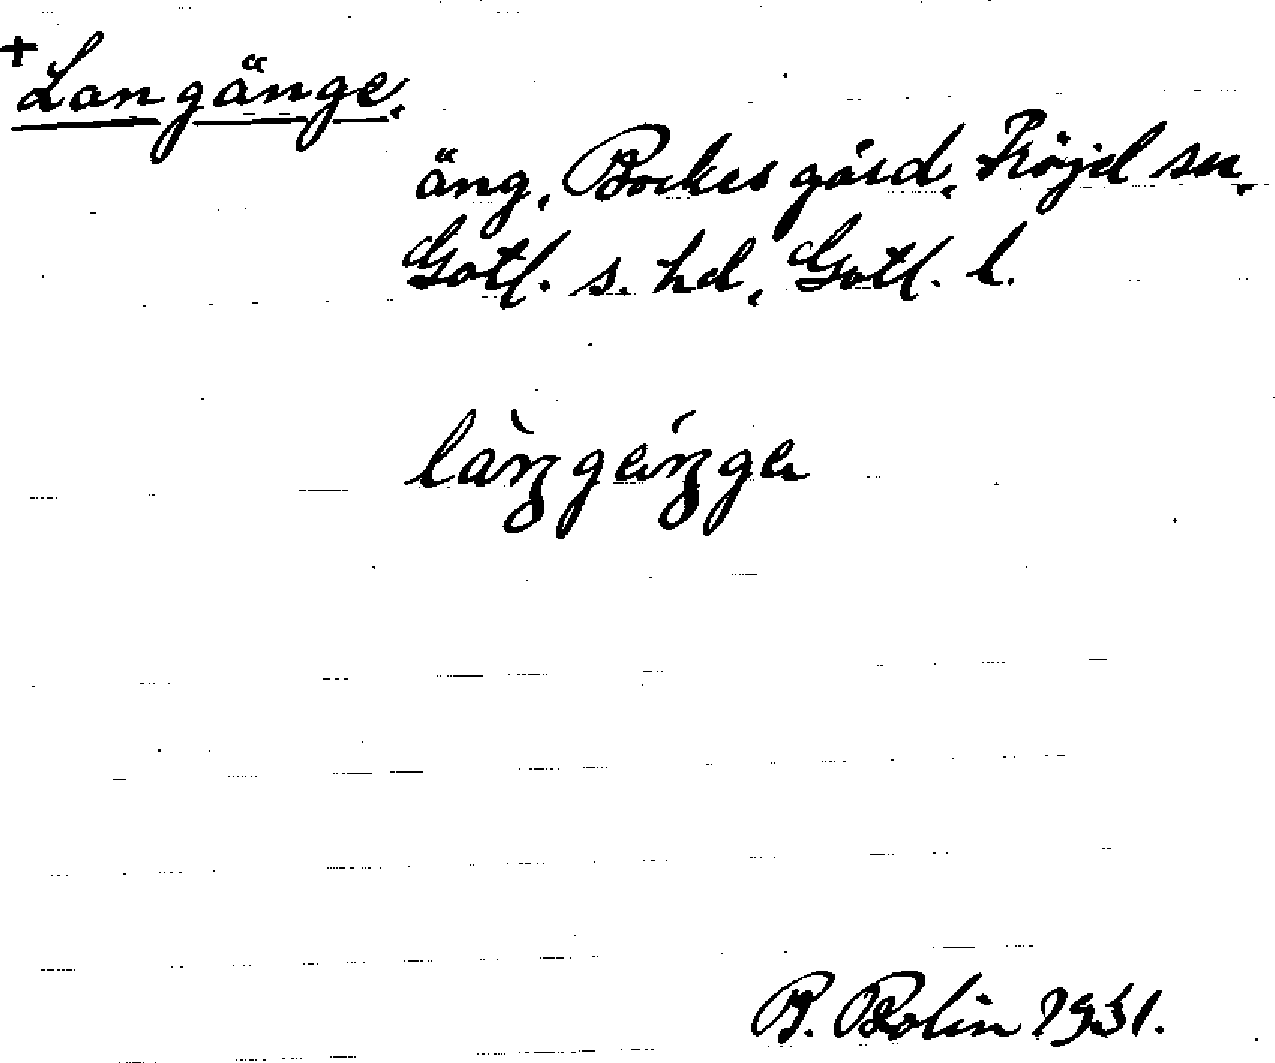 + Langänge,
äng, Bockes gård, Fröjel sn,
Gotl. s. hd, Gotl. l.
làŋgáŋga
B. Bolin 1931.